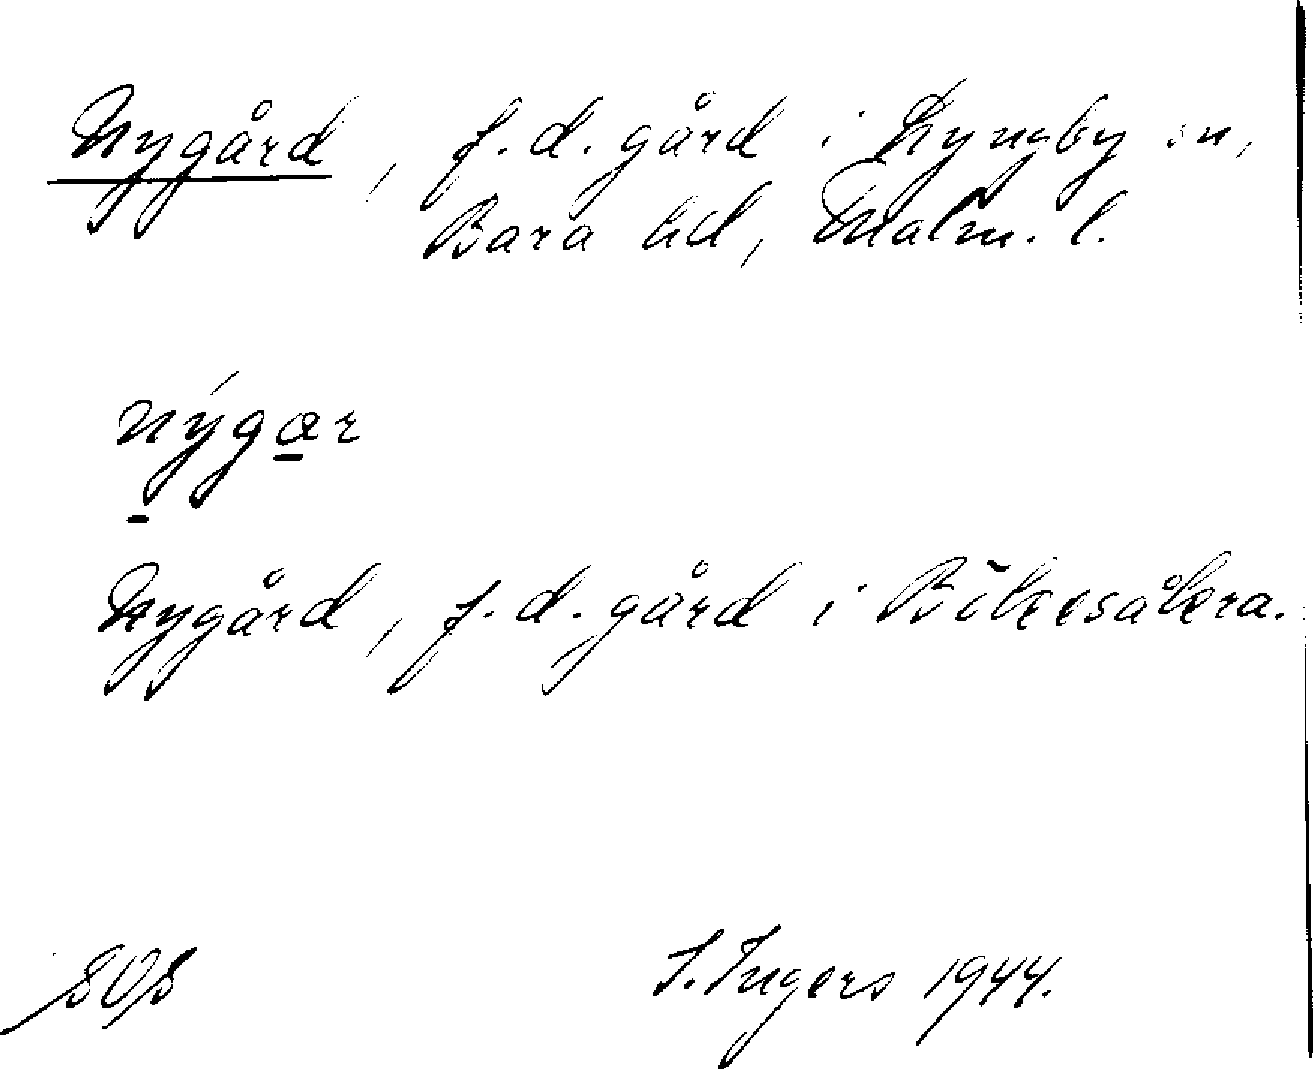 Nygård, f.d. gård i Lyngby sn,
Bara hd, Malm. l.
nýgar
Nygård, f.d. gård i Bökesåkra.
I. Ingers 1944.